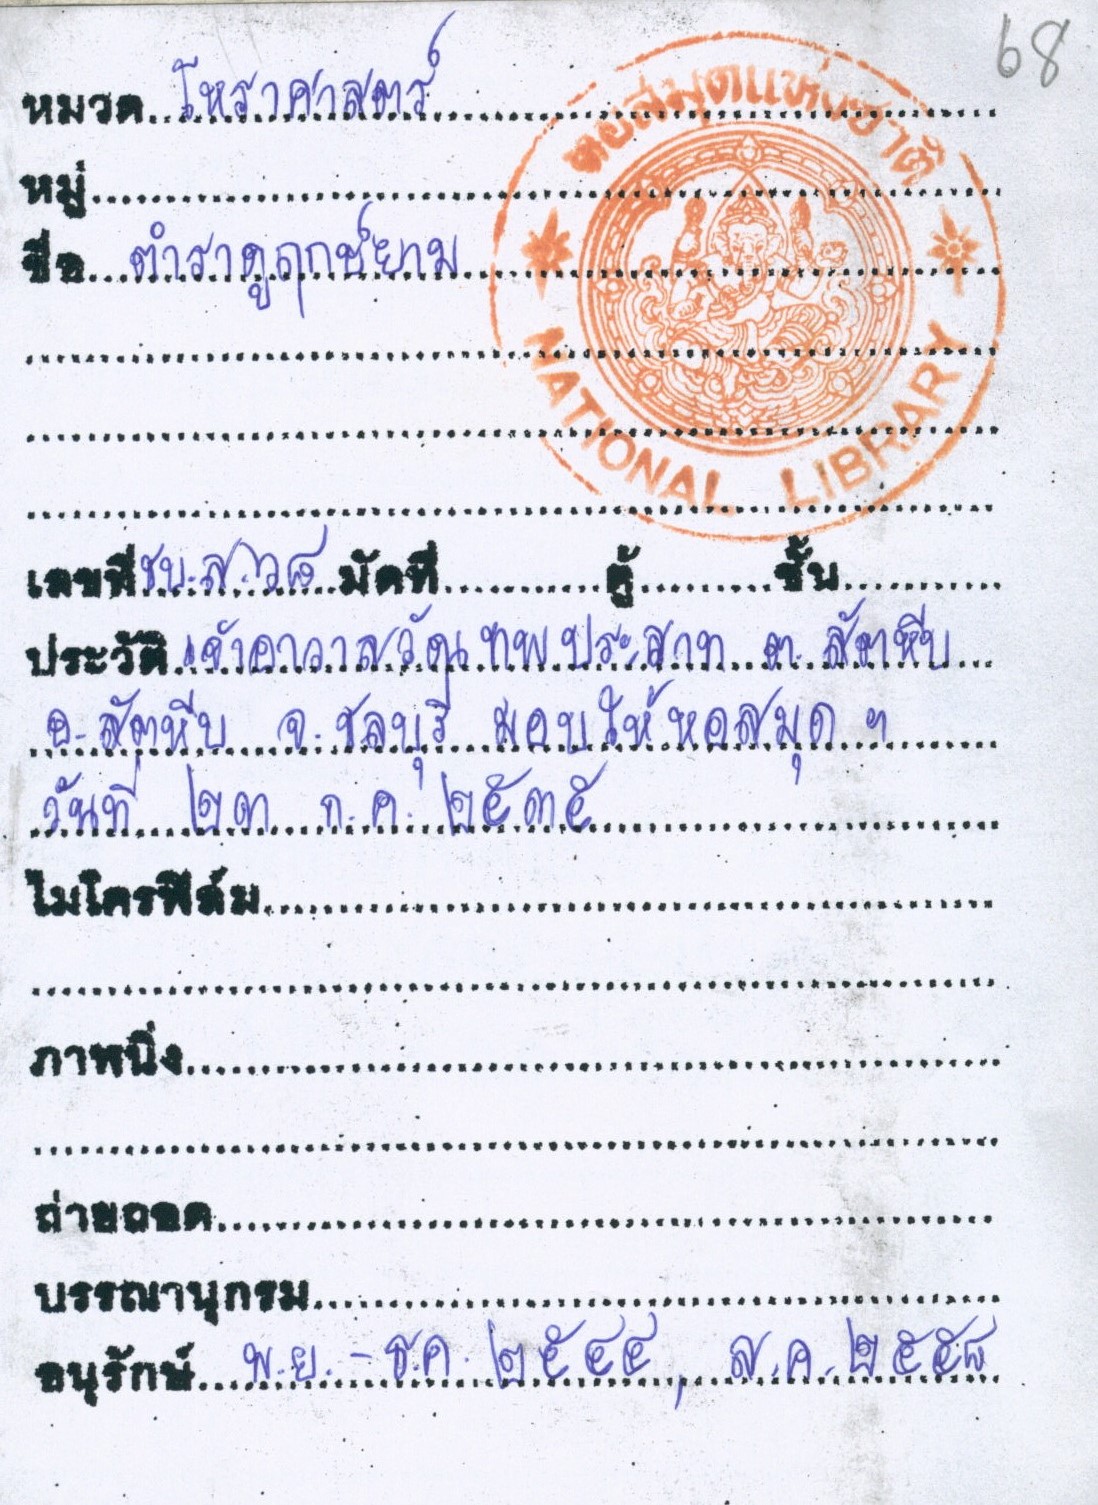 68
หมวด โหราศาสตร์
หอสมุดแห่งชาติ
หมู่
ชื่อ ตำราดูฤกษ์ยาม
NATIONAL LIBRARY
เลขที่ ชบ.ส. ๖๘ มัดที่ ตู้ ชั้น
ประวัติ เจ้าอาวาสวัดเทพประสาท ต. สัตหีบ
อ. สัตหีบ จ. ชลบุรี มอบให้หอสมุด ฯ
วันที่ ๒๓ ก.ค. ๒๕๓๕
ไมโครฟิล์ม
ภาพนิ่ง
ถ่ายถอด
บรรณานุกรม
อนุรักษ์ พ.ย. - ธ.ค. ๒๕๔๔, ส.ค. ๒๕๕๘